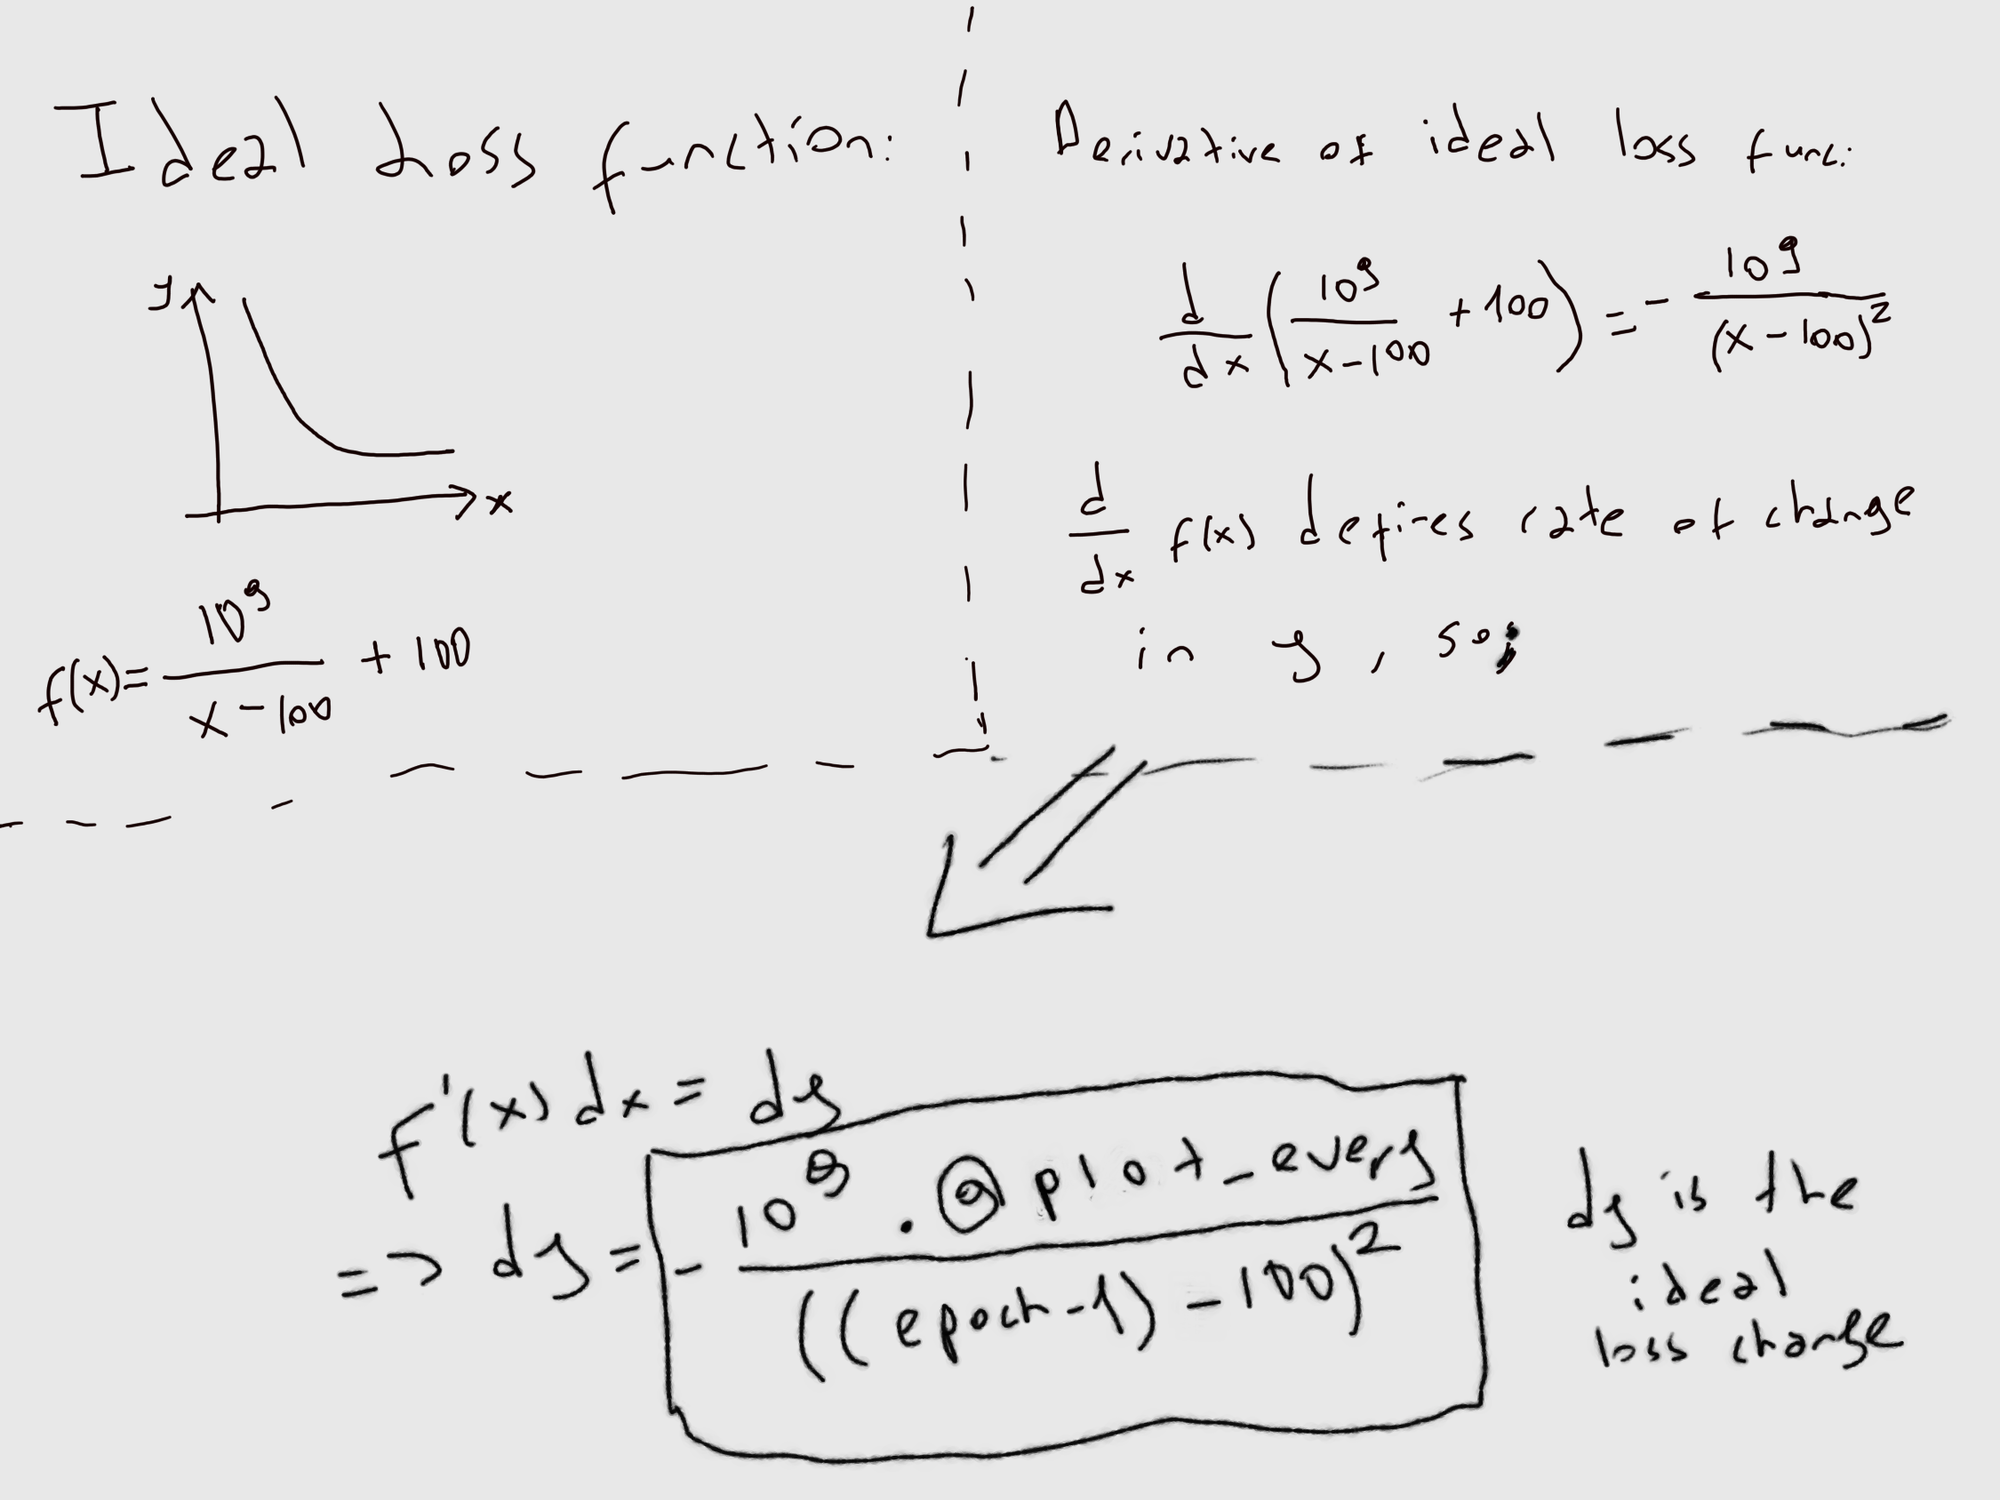 Ideal Loss function:
y
x
f(x)= 10^9 / (x-100) + 100
Derivative of ideal loss func:
d/dx (10^9 / (x-100) + 100) = - 10^9 / (x-100)^2
d/dx f(x) defines rate of change
in y, so;
f'(x) dx = dy
=> dy = - 10^9 . @plot_every / ((epoch-1) - 100)^2
dy is the
ideal
loss change